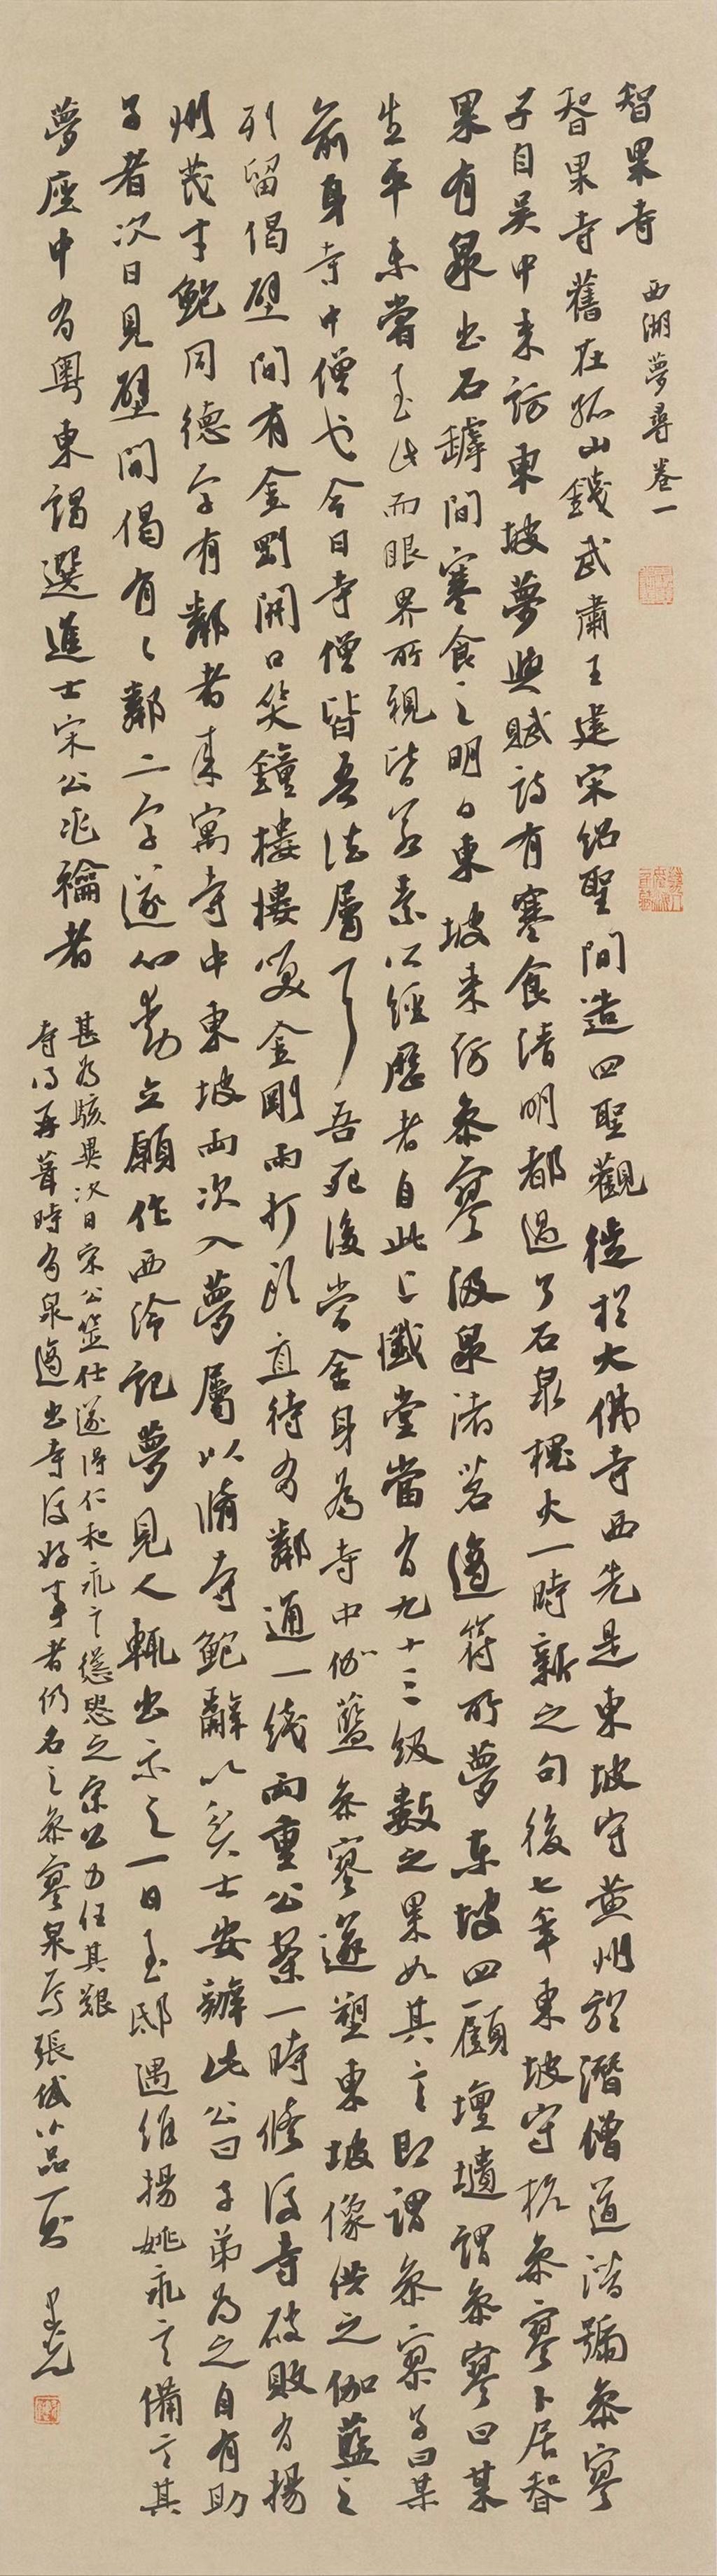 智果寺 西湖夢尋卷一
智果寺舊在孤山錢武肅王建宋紹聖間造四聖觀徙於大佛寺西先是東坡守黄州於潛僧道潛號參寥
子自吳中來訪東坡夢與賦詩有寒食清明都過了石泉槐火一時新之句後七年東坡守杭參寥卜居智
果有泉出石罅間寒食之明日東坡來訪參寥汲泉煮茗適符所夢東坡四顧壇壝謂參寥曰某
生平未嘗至此而眼界所視皆若素所經歷者自此上懺堂當有九十三級數之果如其言即謂參寥子曰某
前身寺中僧也今日寺僧皆吾法屬耳吾死後當舍身為寺中伽藍參寥遂塑東坡像供之伽藍之
列留偈壁間有金剛開口笑鐘樓樓笑金剛雨打頭直待有鄰通一綫兩重公案一時修後寺破敗有揚
州茂才鮑同德字有鄰者來寓寺中東坡兩次入夢屬以修寺鮑辭以貧士安辦此公曰子弟為之自有助
子者次日見壁間偈有々鄰二字遂心動立願作西泠記夢見人輒出示之一日至邸遇維揚姚永言備言其
夢座中有粵東謁選進士宋公兆禴者
甚為駭異次日宋公筮仕遂得仁和永言慫恿之宋公力任其艱
寺得再葺時有泉適出寺後好事者仍名之參寥泉焉 張岱小品一則